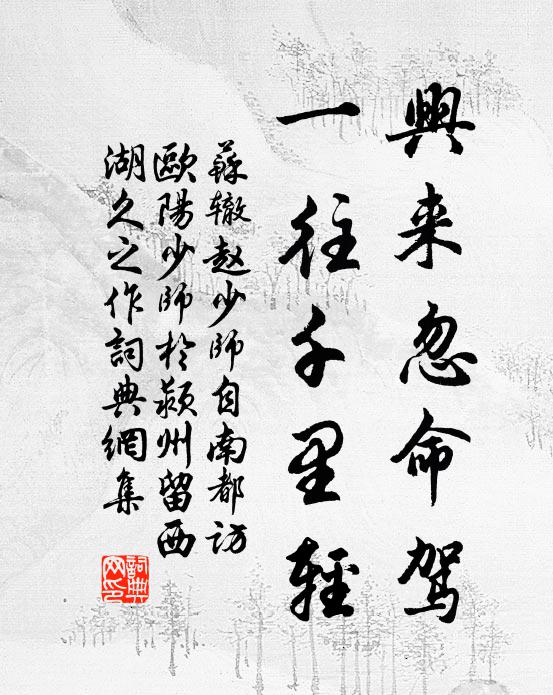 興来忽命駕
一往千里輕
蘇辙赵少师自南都访
歐陽少师於颍州留西
湖久之作詞典網集
詞典网印